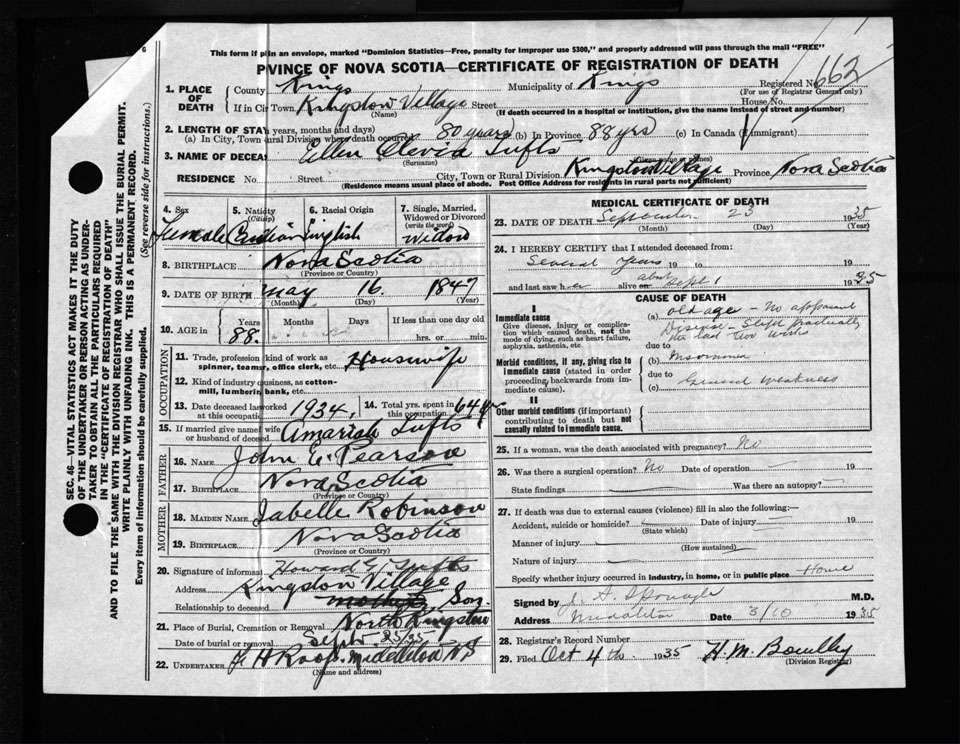 6
This form if p in an envelope, marked "Dominion Statistics—Free, penalty for improper use $300," and properly addressed will pass through the mail "FREE"
P VINCE OF NOVA SCOTIA—CERTIFICATE OF REGISTRATION OF DEATH
1. PLACE OF DEATH County Kings Municipality of Kings Registered No. 662
(For use of Registrar General only)
If in Cit Town, Kingston Village Street House No.
(Name) (If death occurred in a hospital or institution, give the name instead of street and number)
2. LENGTH OF STA n years, months and days)
(a) In City, Town ural Division where death occurre 80 years (b) In Province 88 yrs (c) In Canada (if immigrant)
3. NAME OF DECEAS Ellen Tufts
(Surname)
RESIDENCE No. Street City, Town or Rural Division Kingston Village Province Nova Scotia
(Residence means usual place of abode. Post Office Address for residents in rural parts not sufficient)
4. Sex 5. Nati ty (Citizenship) 6. Racial Origin 7. Single, Married, Widowed or Divorced (write the word)
Female English Widow
8. BIRTHPLACE Nova Scotia
(Province or Country)
9. DATE OF BIRTH May 16 1847
(Month) (Day) (Year)
10. AGE in Years Months Days If less than one day old
88. hrs. or min.
OCCUPATION
11. Trade, profession kind of work as spinner, team r, office clerk, etc. Housewife
12. Kind of industry usiness, as cotton-mill, lumberin bank, etc.
13. Date deceased las worked at this occupatio 1934, 14. Total yrs. spent in this occupation 64 yrs
15. If married give name wife or husband of decease Amariah Tufts
FATHER
16. NAME John Pearson
17. BIRTHPLACE Nova Scotia
(Province or Country)
MOTHER
18. MAIDEN NAME Isabelle Robinson
19. BIRTHPLACE Nova Scotia
(Province or Country)
20. Signature of informa Howard Tufts
Address Kingston Village
Relationship to deceased Son.
21. Place of Burial, Cremation or Removal North Kingston
Date of burial or remov Sept 25/35
22. UNDERTAKER Middleton NS
(Name and address)
MEDICAL CERTIFICATE OF DEATH
23. DATE OF DEATH September 23 1935
(Month) (Day) (Year)
24. I HEREBY CERTIFY that I attended deceased from:
Several years 19 to 19
and last saw her alive on about Sept 1 1935
CAUSE OF DEATH
I
Immediate cause
Give disease, injury or complication which caused death, not the mode of dying, such as heart failure, asphyxia, asthenia, etc.
(a) old age - No apparent
Disease - Slept gradually
the last two weeks
due to
Morbid conditions, if any, giving rise to immediate cause (stated in order proceeding backwards from immediate cause).
(b) Insomnia
due to
(c) General weakness
II
Other morbid conditions (if important) contributing to death but not causally related to immediate cause.
25. If a woman, was the death associated with pregnancy? No
26. Was there a surgical operation? No Date of operation 19
State findings Was there an autopsy?
27. If death was due to external causes (violence) fill in also the following:—
Accident, suicide or homicide? Date of injury 19
(State which)
Manner of injury
(How sustained)
Nature of injury
Specify whether injury occurred in industry, in home, or in public place Home
Signed by M.D.
Address Middleton Date 3/10 1935
28. Registrar's Record Number
29. Filed Oct 4th 1935 H. M.
(Division Registrar)
SEC. 46—VITAL STATISTICS ACT MAKES IT THE DUTY
OF THE UNDERTAKER OR PERSON ACTING AS UNDER-
TAKER TO OBTAIN ALL THE PARTICULARS REQUIRED
IN THE "CERTIFICATE OF REGISTRATION OF DEATH"
AND TO FILE THE SAME WITH THE DIVISION REGISTRAR WHO SHALL ISSUE THE BURIAL PERMIT.
WRITE PLAINLY WITH UNFADING INK. THIS IS A PERMANENT RECORD.
Every item of information should be carefully supplied.
(See reverse side for instructions.)